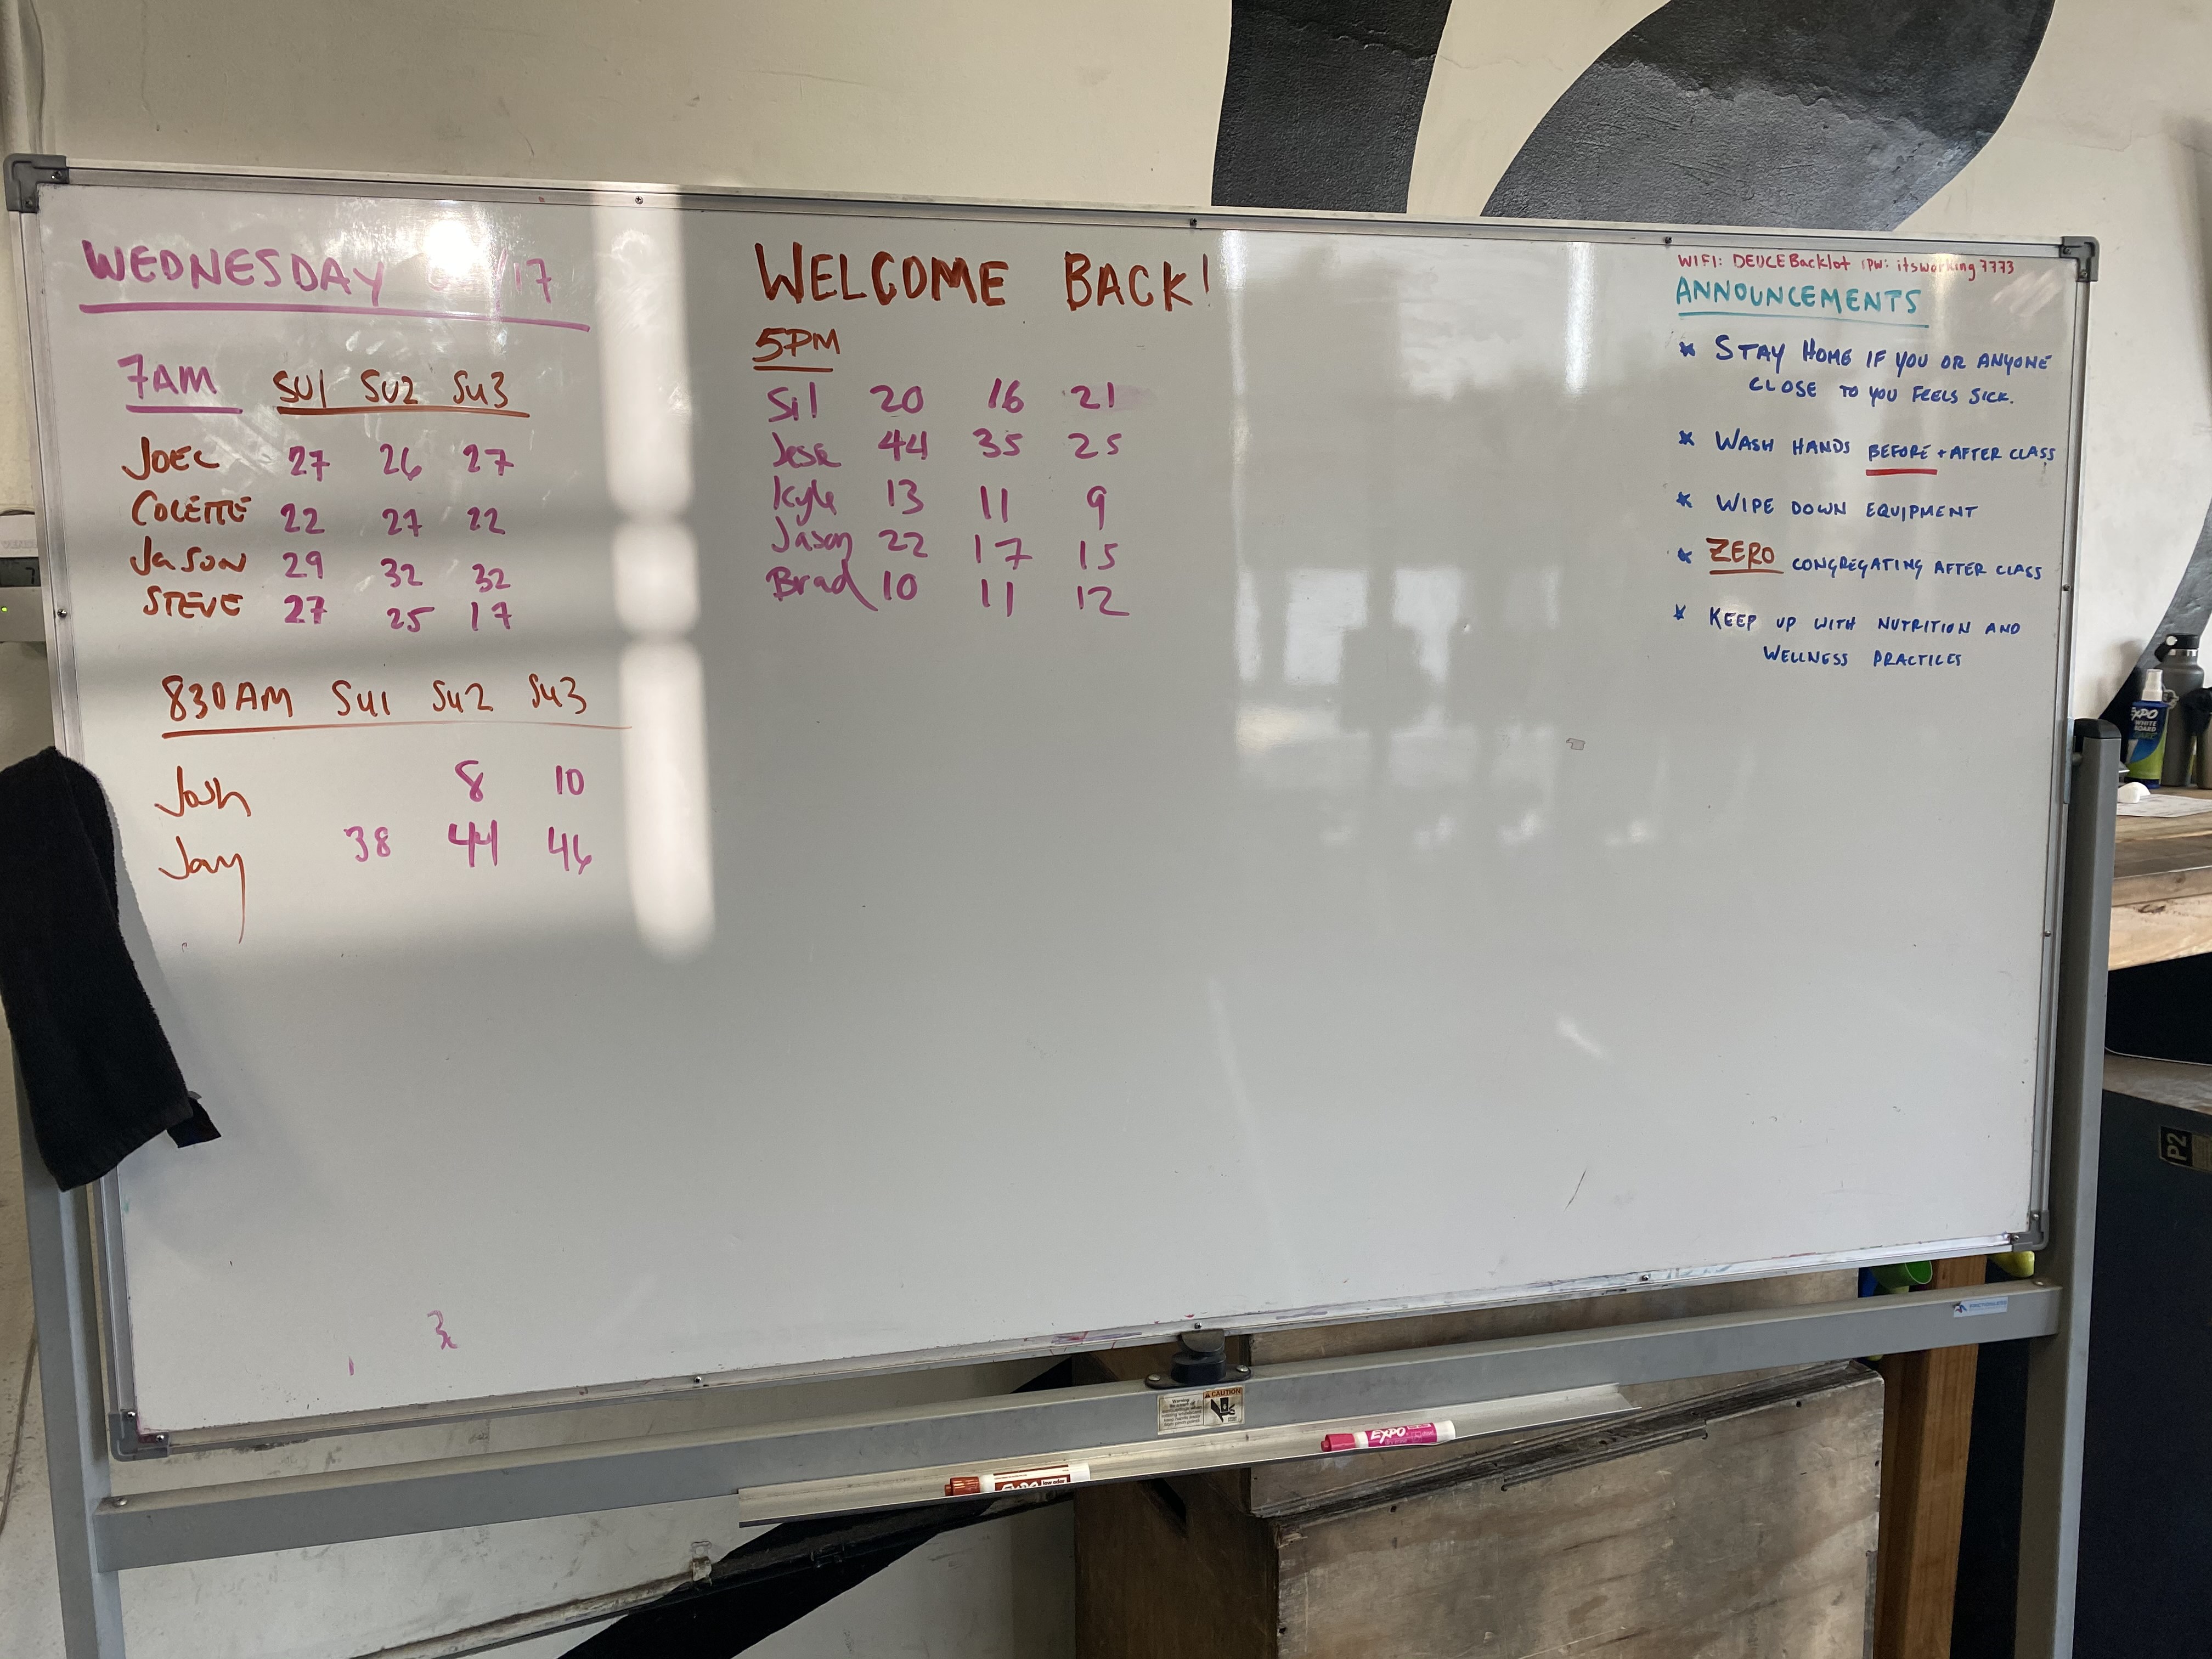 WEDNESDAY /17
7AM SU1 SU2 SU3
JOEL 27 26 27
COLETTE 22 27 22
JASON 29 32 32
STEVE 27 25 17
830AM SU1 SU2 SU3
Josh 8 10
Jay 38 44 46
WELCOME BACK!
5PM
Sil 20 16 21
Jese 44 35 25
Kyle 13 11 9
Jason 22 17 15
Brad 10 11 12
WIFI: DEUCEBacklot PW: itsworking7773
ANNOUNCEMENTS
* STAY HOME IF YOU OR ANYONE
CLOSE TO YOU FEELS SICK.
* WASH HANDS BEFORE + AFTER CLASS
* WIPE DOWN EQUIPMENT
* ZERO CONGREGATING AFTER CLASS
* KEEP UP WITH NUTRITION AND
WELLNESS PRACTICES
EXPO
WHITE
BOARD
CARE
P2
CAUTION
EXPO
EXPO low odor